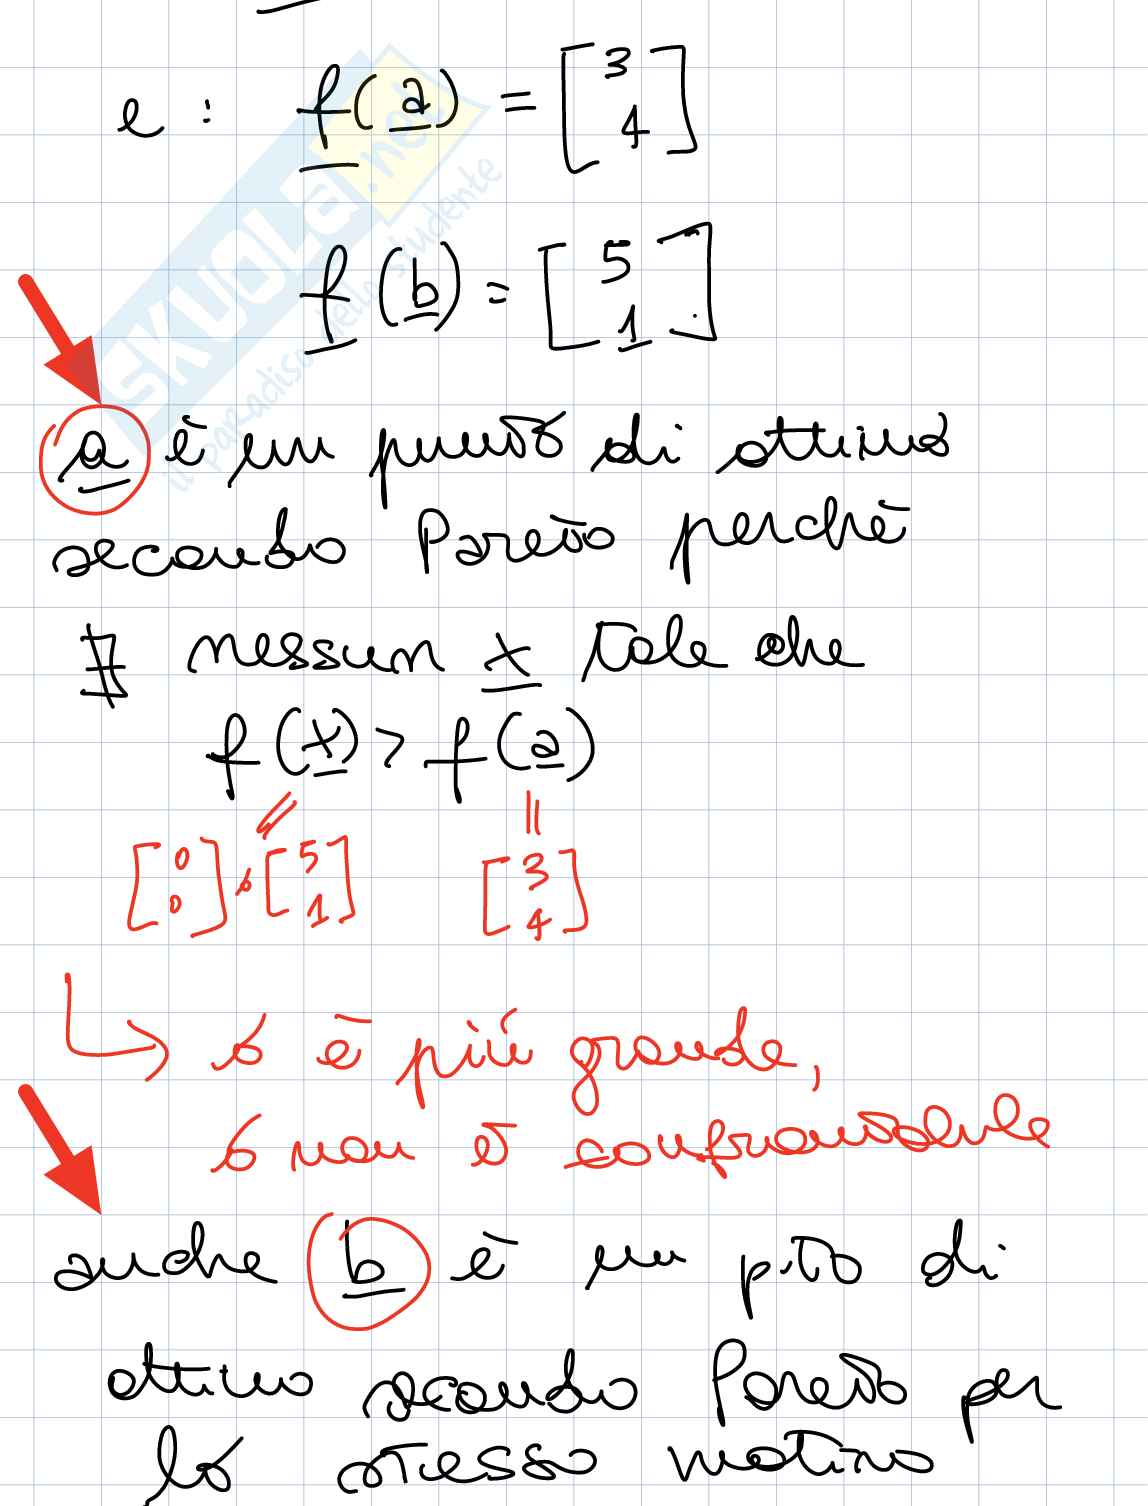 e : f(a) = [3 4]
f(b) = [5 1]
a è un punto di ottimo
secondo Pareto perchè
∄ nessun x tale che
f(x) > f(a)
[0 0] o [5 1] [3 4]
↳ o è più grande,
o non è confrontabile
anche b è un pto di
ottimo secondo Pareto per
lo stesso motivo
SKUOLA.net
il paradiso dello studente